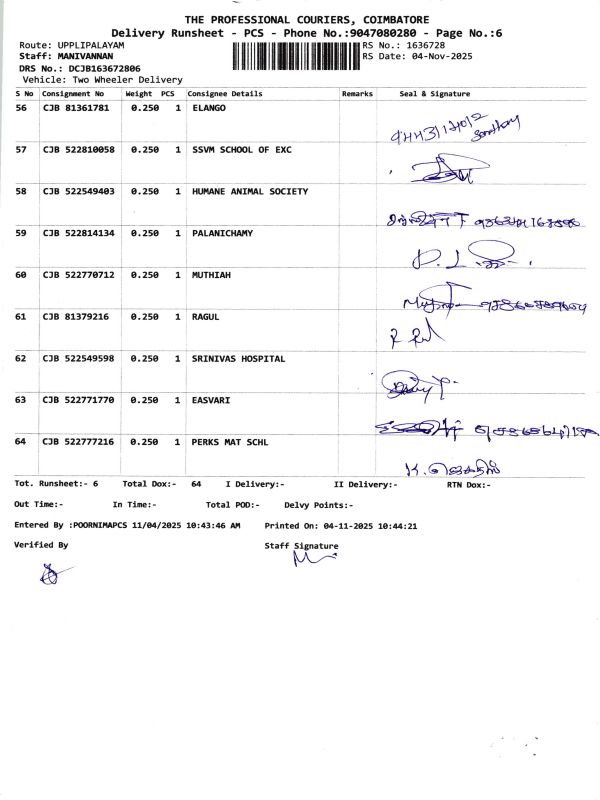 THE PROFESSIONAL COURIERS, COIMBATORE
Delivery Runsheet - PCS - Phone No.:9047080280 - Page No.:6
Route: UPPLIPALAYAM RS No.: 1636728
Staff: MANIVANNAN RS Date: 04-Nov-2025
DRS No.: DCJB163672806
Vehicle: Two Wheeler Delivery
S No Consignment No Weight PCS Consignee Details Remarks Seal & Signature
56 CJB 81361781 0.250 1 ELANGO
57 CJB 522810058 0.250 1 SSVM SCHOOL OF EXC
58 CJB 522549403 0.250 1 HUMANE ANIMAL SOCIETY
59 CJB 522814134 0.250 1 PALANICHAMY
60 CJB 522770712 0.250 1 MUTHIAH
61 CJB 81379216 0.250 1 RAGUL
62 CJB 522549598 0.250 1 SRINIVAS HOSPITAL
63 CJB 522771770 0.250 1 EASVARI
64 CJB 522777216 0.250 1 PERKS MAT SCHL
Tot. Runsheet:- 6 Total Dox:- 64 I Delivery:- II Delivery:- RTN Dox:-
Out Time:- In Time:- Total POD:- Delvy Points:-
Entered By :POORNIMAPCS 11/04/2025 10:43:46 AM Printed On: 04-11-2025 10:44:21
Verified By Staff Signature